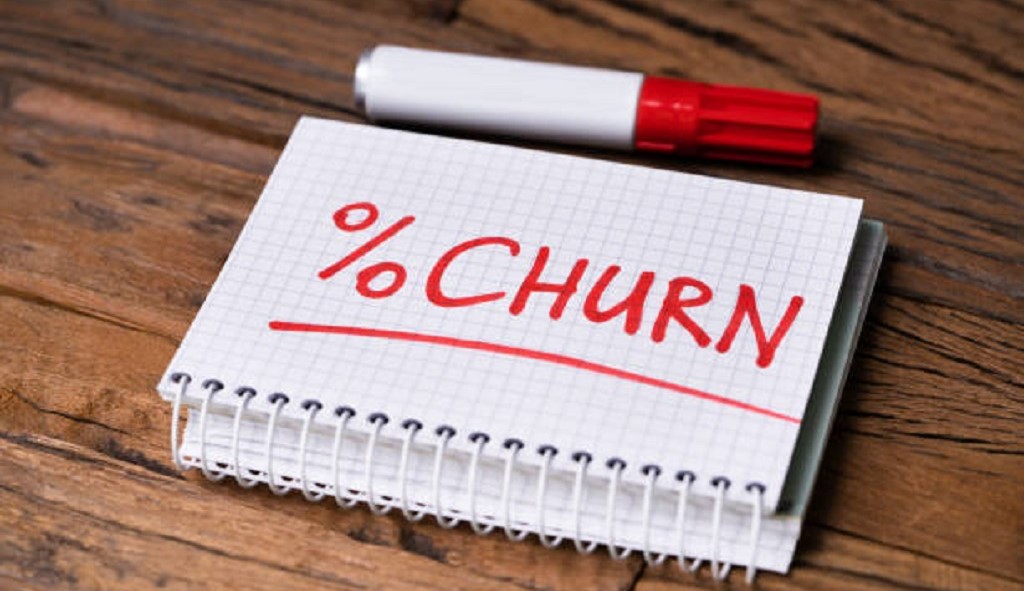 % CHURN